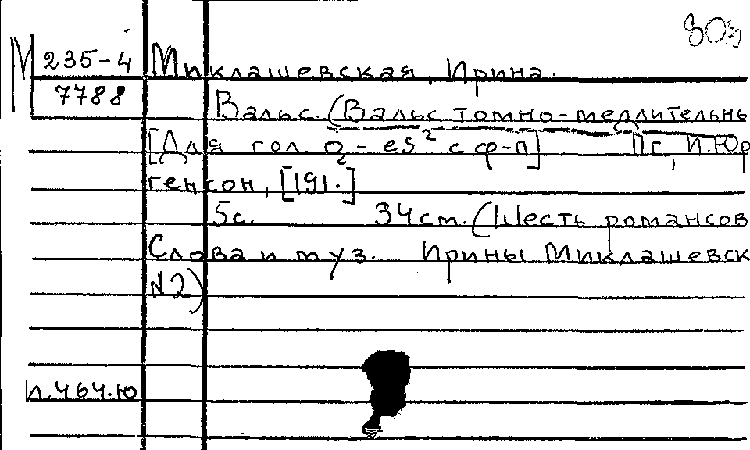 803
М 235-4 Миклашевская, Ирина.
7788 Вальс. (Вальс томно-медлительн
[Для гол. a₂-es² с ф-п] Пг, И. Юр
генсон, [191.]
5с. 34см. (Шесть романсов
Слова и муз. Ирины Миклашевск
№2)
л.464.ю